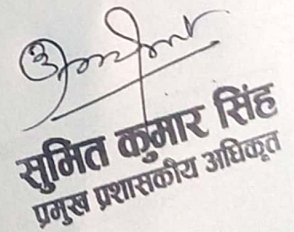 सुमित कुमार सिंह
प्रमुख प्रशासकीय अधिकृत